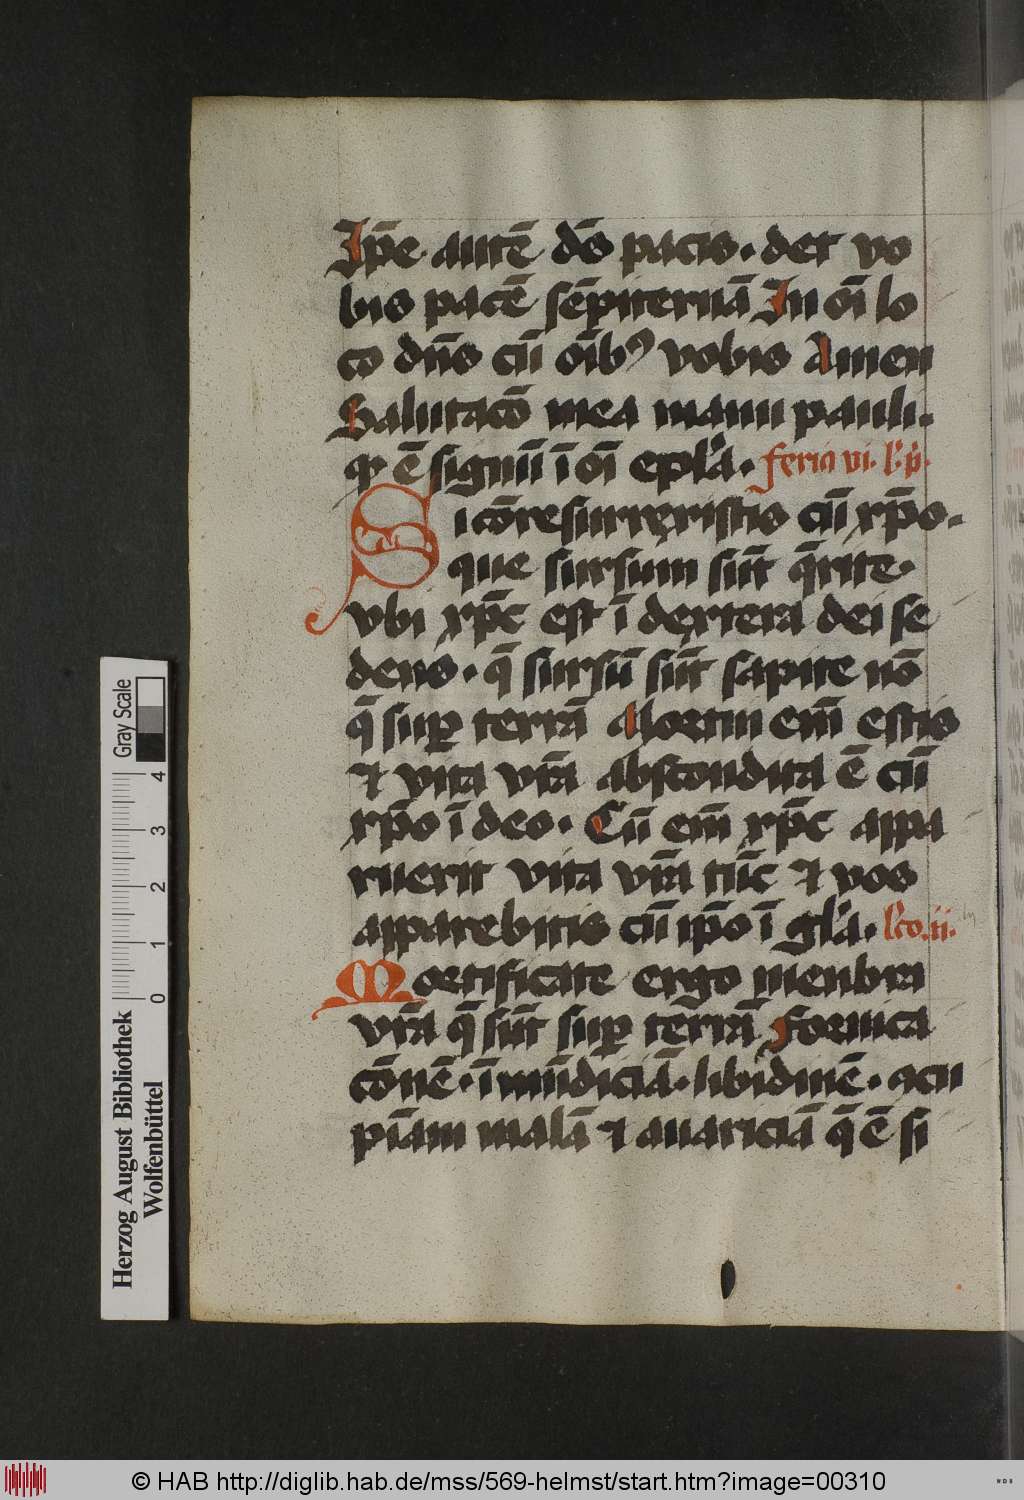 Ip̄e autē dn̄s pacis · det vo
bis pacē sēpiternā In oı̄ lo
co dn̄s cū oı̄bꝰ vobis Amen
Salutacō mea manu pauli ·
qͥ ē signū ı̄ oı̄ epl̓a · feria vi · l̓ · p̓ ·
Si cōresurrexistis cū xp̄o ·
que sursum sūt q̄rite ·
vbi xp̄c est ı̄ dextera dei se
dens · q̄ sursū sūt sapite nō
q̄ suꝑ terrā Mortui em̄ estis
⁊ vita vr̄a abscondita ē cū
xp̄o ı̄ deo · Cū em̄ xp̄c appa
ruerit vita vr̄a tūc ⁊ vos
apparebitis cū ip̄o ı̄ gl̓a · l̓co · ii ·
Mortificate ergo menbra
vr̄a q̄ sūt suꝑ terrā fornica
cōnē · ı̄mūdiciā · libidinē · 9cu
pı̄am malā ⁊ auariciā q̄ ē si
Gray Scale
4
3
2
1
0
Herzog August Bibliothek
Wolfenbüttel
© HAB http://diglib.hab.de/mss/569-helmst/start.htm?image=00310